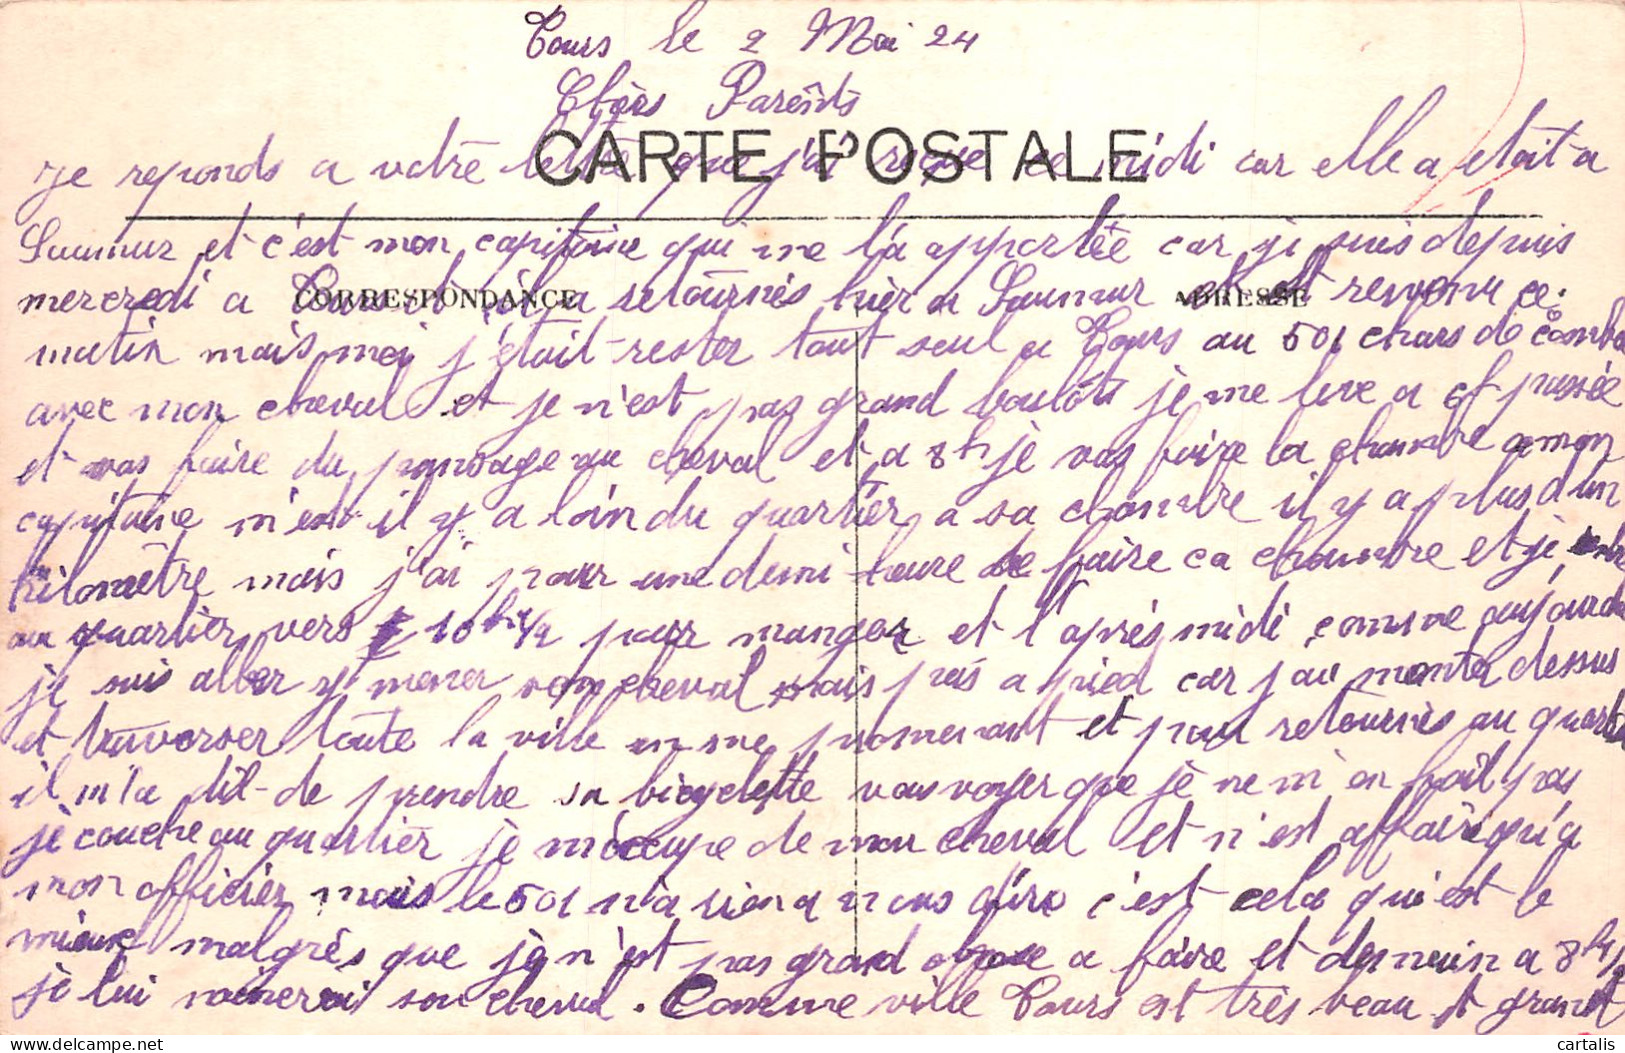 Tours le 2 Mai 24
Chèrs Parents
CARTE POSTALE
je reponds a votre lettre que j'ai reçue ce midi car elle a etait a
Saumur et c'est mon capitaine qui me l'a apportée car je suis depuis
mercredi a Tours et il a retournés hièr a Saumur et est revenu ce
CORRESPONDANCE
ADRESSE
matin mais moi j'était rester tout seul a Tours au 501 chars de comba
avec mon cheval et je n'est pas grand boulôt je me leve a 6h passée
et vas faire du pansage au cheval et a 8h je vas faire la chambre a mon
capitaine m'est il y a loin du quartier a sa chambre il y a plus d'un
kilomètre mais j'ai pour une demi heure de faire ca chambre et je
au quartier vers 10h 1/2 pour manger et l'après midi comme aujourd
je suis aller y mener son cheval mais pas a pied car j'ai monter dessus
et traverser toute la ville en me promenant et pour retournés au quartier
il m'a dit de prendre sa bicyclette vous voyer que je ne m'en fait pas
je couche au quartier je m'ocupe de mon cheval et n'est affaire qu'a
mon officier mais le 501 n'a rien a nous dire c'est cela qui est le
mieux malgrès que je n'est pas grand chose a faire et demain a 8h 1/2
je lui mènerai son cheval. Comme ville Tours est très beau et grand
cartalis